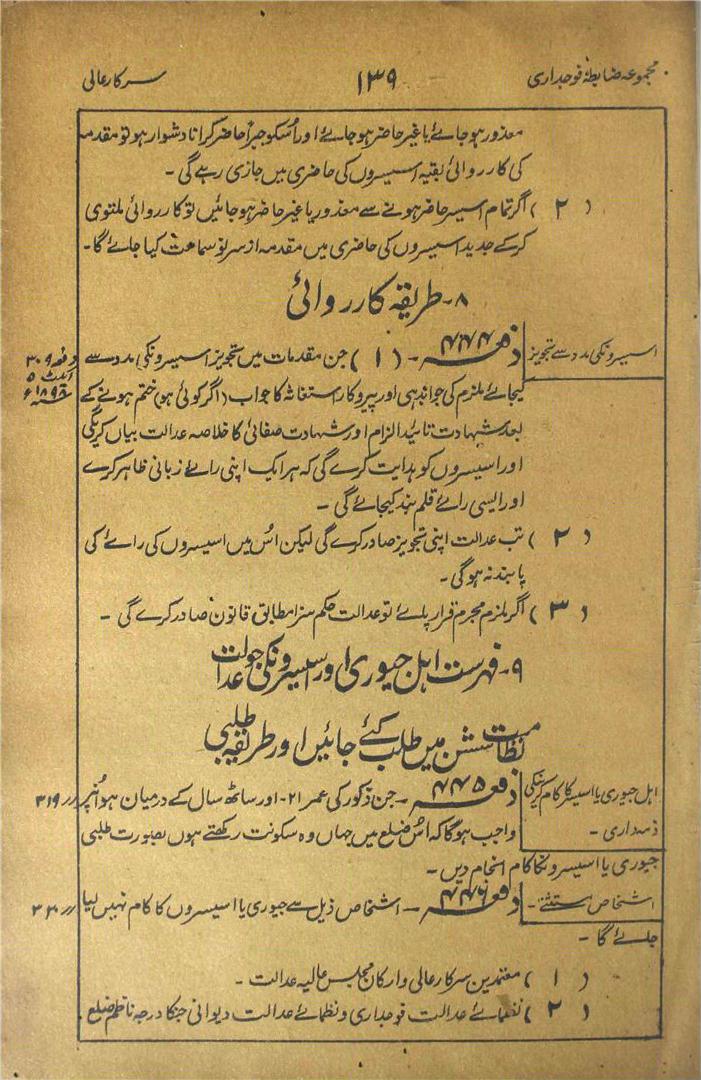 مجموعہ ضابطۂ فوجداری
۱۳۹
سرکار عالی
معذور ہو جائے یا غیر حاضر ہو جائے اور اُسکو جبراً حاضر کرانا دشوار ہو تو مقدمہ
کی کارروائی بقیہ اسیسروں کی حاضری میں جاری رہے گی ۔
( ۲ ) اگر تمام اسیسر حاضر ہونے سے معذور یا غیر حاضر ہو جائیں تو کارروائی ملتوی
کر کے جدید اسیسروں کی حاضری میں مقدمہ از سر نو سماعت کیا جائے گا ۔
۸ - طریقہ کارروائی
اسیسرونکی مدد سے تجویز
دفعہ ۴۴۴ - ( ۱ ) جن مقدمات میں تجویز اسیسرونکی مدد سے
دفعہ ۳۰۹
ایکٹ ۵
۱۸۹۸ء
کیجائے ملزم کی جوابدہی اور پیروکار استغاثہ کا جواب (اگر کوئی ہو) ختم ہونے کے
بعد شہادت تائید الزام اور شہادت صفائی کا خلاصہ عدالت بیان کریگی
اور اسیسروں کو ہدایت کرے گی کہ ہر ایک اپنی رائے زبانی ظاہر کرے
اور ایسی رائے قلم بند کیجائے گی ۔
( ۲ ) تب عدالت اپنی تجویز صادر کرے گی لیکن اُس میں اسیسروں کی رائے کی
پابند نہ ہوگی ۔
( ۳ ) اگر ملزم مجرم قرار پائے تو عدالت حکم سزا مطابق قانون صادر کرے گی ۔
۹ - فہرست اہل جیوری اور اسیسرونکی جو عدالت
نظامت سشن میں طلب کئے جائیں اور طریقہ طلبی
اہل جیوری یا اسیسر کا کام کرنیکی
ذمہ داری ۔
دفعہ ۴۴۵ - جن ذکور کی عمر ۲۱ - اور ساٹھ سال کے درمیان ہو اُنپر
〃 ۳۱۹
واجب ہوگا کہ اُس ضلع میں جہاں وہ سکونت رکھتے ہوں بصورت طلبی
جیوری یا اسیسرونکا کام انجام دیں ۔
اشخاص مستثنےٰ ۔
دفعہ ۴۴۶ - اشخاص ذیل سے جیوری یا اسیسروں کا کام نہیں لیا
〃 ۳۲۰
جائے گا ۔
( ۱ ) معتمدین سرکار عالی و ارکان مجلس عالیہ عدالت ۔
( ۲ ) نظمائے عدالت فوجداری و نظمائے عدالت دیوانی جنکا درجہ ناظم ضلع